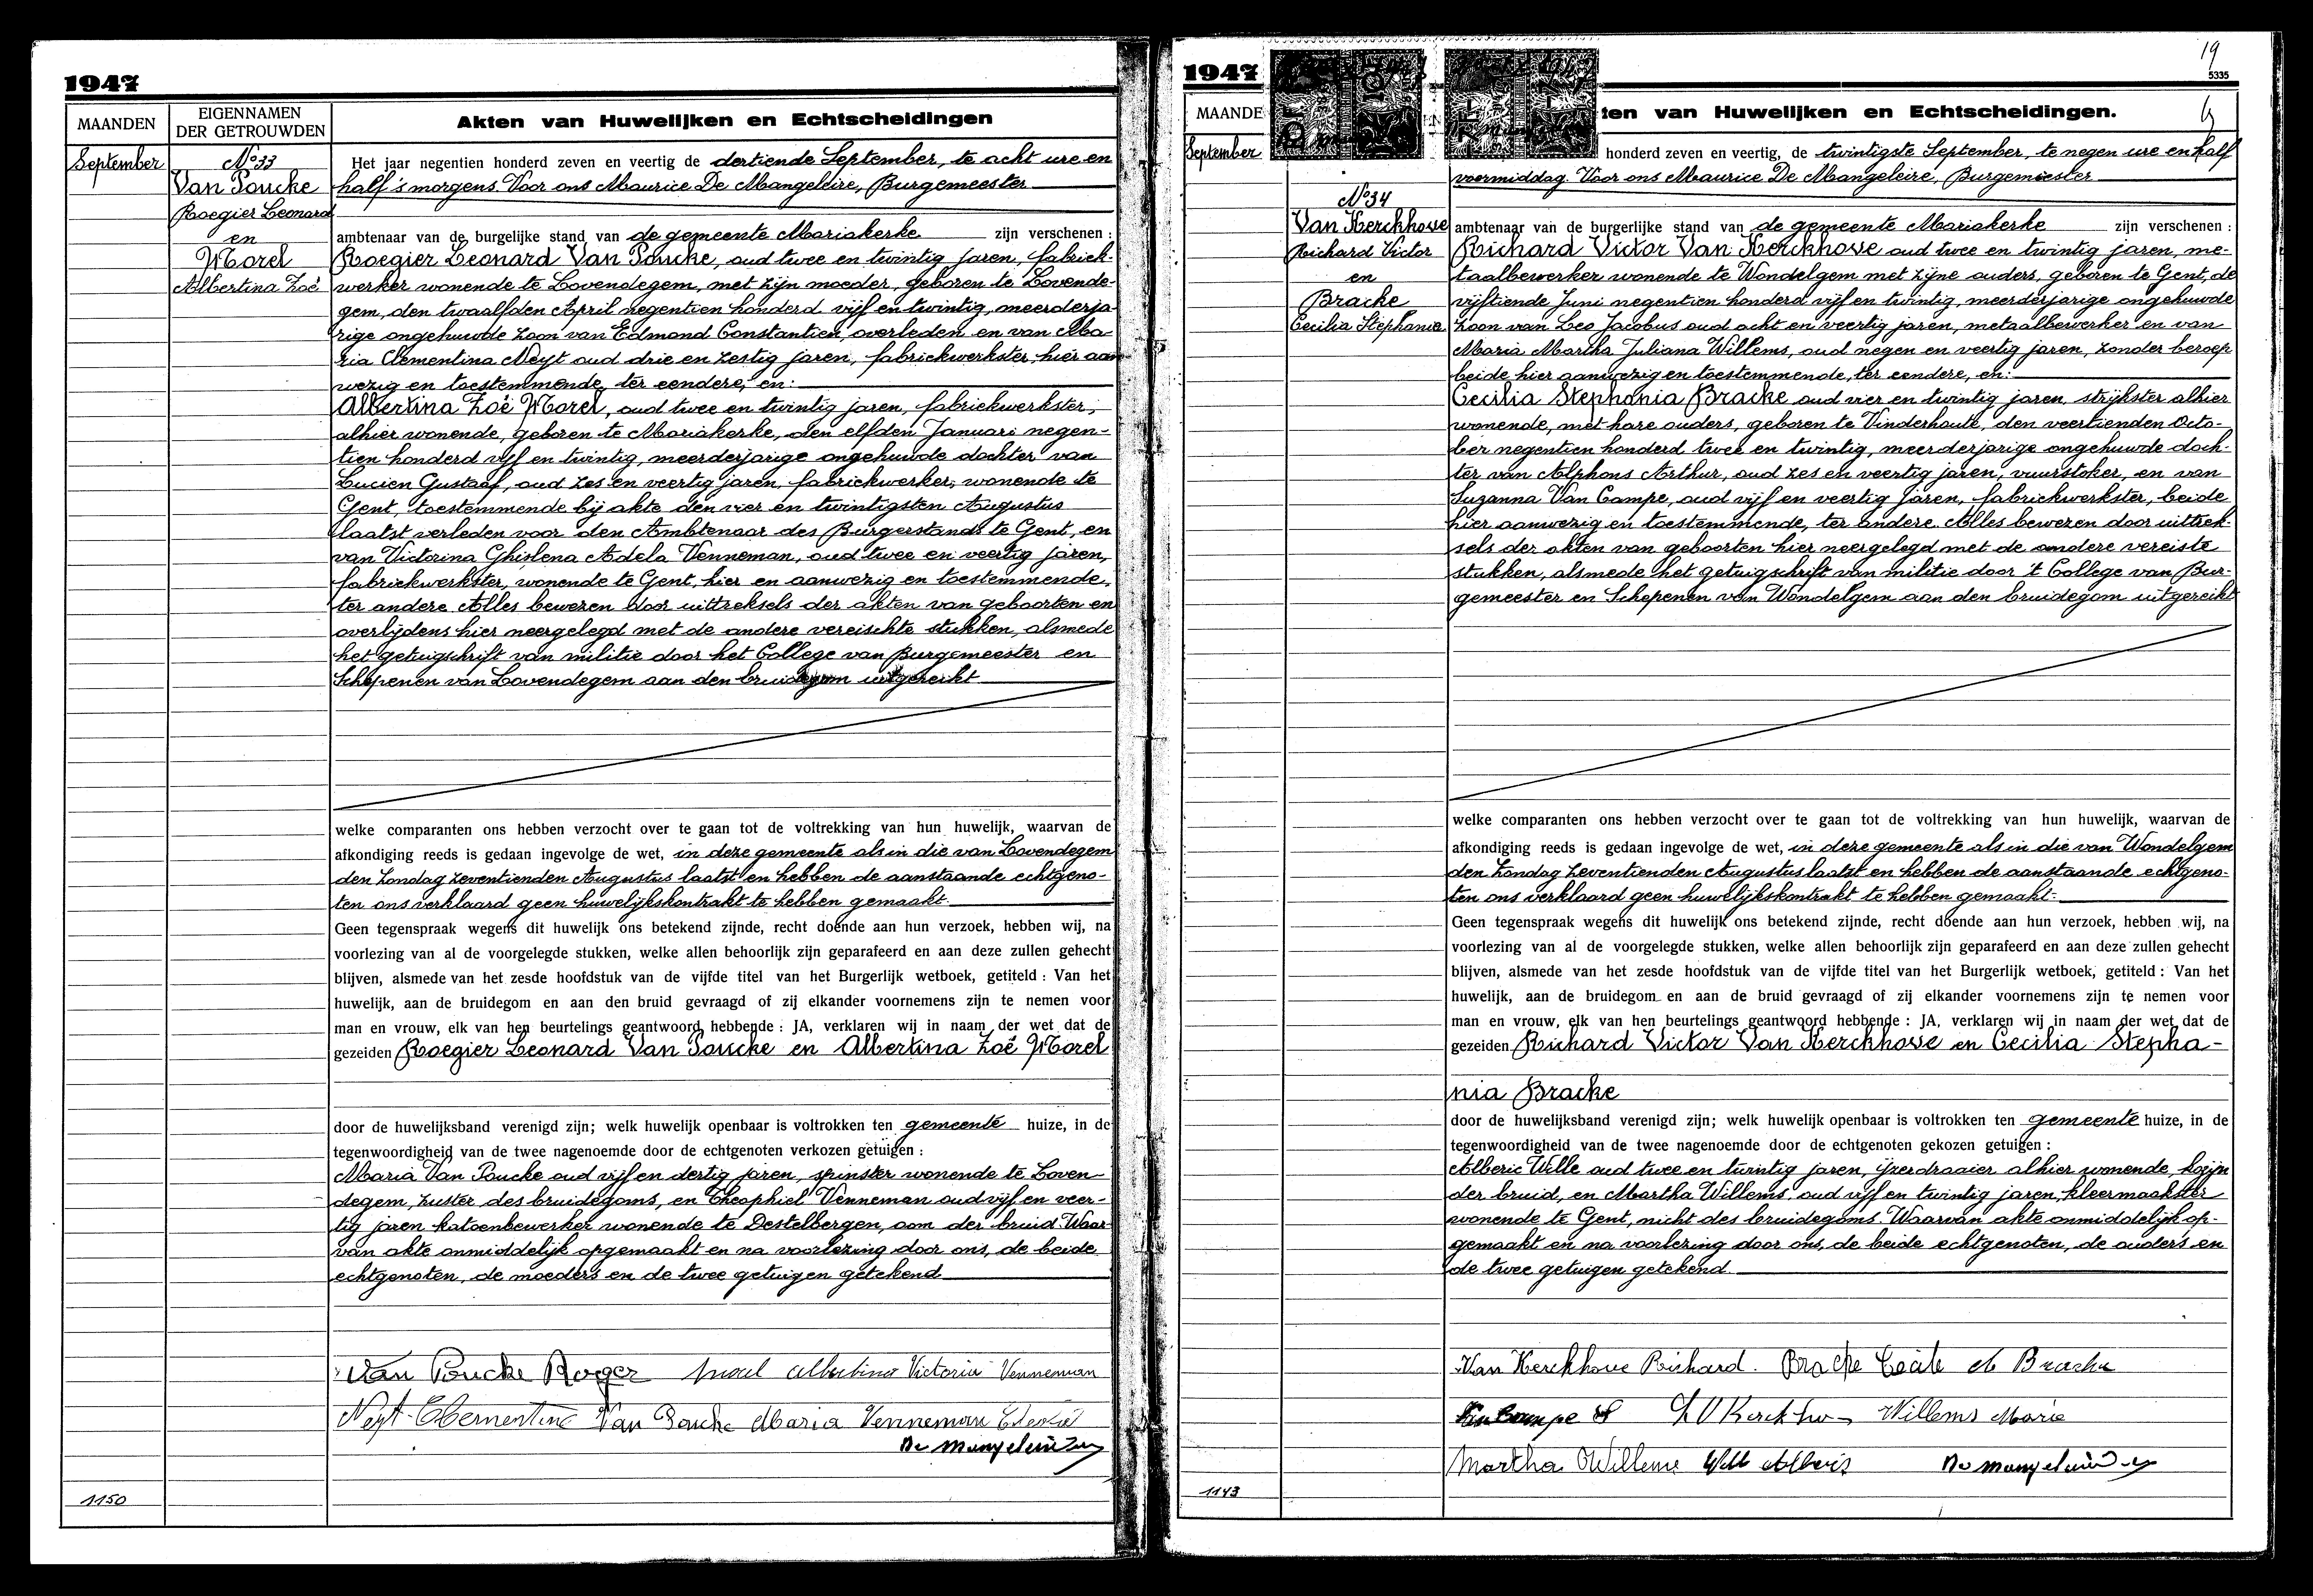 1947
MAANDEN
EIGENNAMEN
DER GETROUWDEN
Akten van Huwelijken en Echtscheidingen
September
No 33
Van Poucke
Roegier Leonard
en
Morel
Albertina Zoë
Het jaar negentien honderd zeven en veertig de dertiende September, te acht ure en
half 's morgens. Voor ons Maurice De Mangeleire, Burgemeester
ambtenaar van de burgelijke stand van de gemeente Mariakerke zijn verschenen :
Roegier Leonard Van Poucke, oud twee en twintig jaren, fabriek-
werker wonende te Lovendegem, met zijn moeder, geboren te Lovende-
gem, den twaalfden April negentien honderd vijf en twintig, meerderja-
rige ongehuwde zoon van Edmond Constantien, overleden en van Ma-
ria Clementina Neyt oud drie en zestig jaren, fabriekwerkster, hier aan
wezig en toestemmende, ter eendere, en:
Albertina Zoë Morel, oud twee en twintig jaren, fabriekwerkster,
alhier wonende, geboren te Mariakerke, den elfden Januari negen-
tien honderd vijf en twintig, meerderjarige ongehuwde dochter van
Lucien Gustaaf, oud zes en veertig jaren, fabriekwerker, wonende te
Gent, toestemmende bij akte den vier en twintigsten Augustus
laatst verleden voor den Ambtenaar des Burgerstands te Gent, en
van Victorina Ghislena Adela Venneman, oud twee en veertig jaren,
fabriekwerkster, wonende te Gent, hier en aanwezig en toestemmende,
ter andere. Alles bewezen door uittreksels der akten van geboorten en
overlijdens hier neergelegd met de andere vereischte stukken, alsmede
het getuigschrift van militie door het College van Burgemeester en
Schepenen van Lovendegem aan den bruidegom uitgereikt
welke comparanten ons hebben verzocht over te gaan tot de voltrekking van hun huwelijk, waarvan de
afkondiging reeds is gedaan ingevolge de wet, in deze gemeente als in die van Lovendegem
den Zondag zeventienden Augustus laatst en hebben de aanstaande echtgeno-
ten ons verklaard geen huwelijkskontrakt te hebben gemaakt.
Geen tegenspraak wegens dit huwelijk ons betekend zijnde, recht doende aan hun verzoek, hebben wij, na
voorlezing van al de voorgelegde stukken, welke allen behoorlijk zijn geparafeerd en aan deze zullen gehecht
blijven, alsmede van het zesde hoofdstuk van de vijfde titel van het Burgerlijk wetboek, getiteld : Van het
huwelijk, aan de bruidegom en aan den bruid gevraagd of zij elkander voornemens zijn te nemen voor
man en vrouw, elk van hen beurtelings geantwoord hebbende : JA, verklaren wij in naam der wet dat de
gezeiden Roegier Leonard Van Poucke en Albertina Zoë Morel
door de huwelijksband verenigd zijn; welk huwelijk openbaar is voltrokken ten gemeente huize, in de
tegenwoordigheid van de twee nagenoemde door de echtgenoten verkozen getuigen :
Maria Van Poucke oud vijf en dertig jaren, spinster wonende te Loven-
degem, zuster des bruidegoms, en Theophiel Venneman oud vijf en veer-
tig jaren katoenbewerker wonende te Destelbergen, oom der bruid. Waar-
van akte onmiddelijk opgemaakt en na voorlezing door ons, de beide
echtgenoten, de moeders en de twee getuigen getekend
Van Poucke Roger Morel Albertina Victoria Venneman
Neyt Clementine Van Poucke Maria Venneman
De Mangeleire
1150
1947
19
5335
MAANDE
ten van Huwelijken en Echtscheidingen.
September
No 34
Van Kerckhove
Richard Victor
en
Bracke
Cecilia Stephania
honderd zeven en veertig, de twintigste September, te negen ure en half
voormiddag. Voor ons Maurice De Mangeleire, Burgemeester
ambtenaar van de burgerlijke stand van de gemeente Mariakerke zijn verschenen :
Richard Victor Van Kerckhove oud twee en twintig jaren, me-
taalbewerker wonende te Wondelgem met zijne ouders, geboren te Gent, de
vijftiende Juni negentien honderd vijf en twintig, meerderjarige ongehuwde
zoon van Leo Jacobus oud acht en veertig jaren, metaalbewerker en van
Maria Martha Juliana Willems, oud negen en veertig jaren, zonder beroep
beide hier aanwezig en toestemmende, ter eendere, en:
Cecilia Stephania Bracke oud vier en twintig jaren, strijkster alhier
wonende, met hare ouders, geboren te Vinderhoute, den veertienden Octo-
ber negentien honderd twee en twintig, meerderjarige ongehuwde doch-
ter van Alphons Arthur, oud zes en veertig jaren, vuurstoker, en van
Suzanna Van Campe, oud vijf en veertig jaren, fabriekwerkster, beide
hier aanwezig en toestemmende, ter andere. Alles bewezen door uittrek-
sels der akten van geboorten hier neergelegd met de andere vereiste
stukken, alsmede het getuigschrift van militie door 't College van Bur-
gemeester en Schepenen van Wondelgem aan den bruidegom uitgereikt
welke comparanten ons hebben verzocht over te gaan tot de voltrekking van hun huwelijk, waarvan de
afkondiging reeds is gedaan ingevolge de wet, in deze gemeente als in die van Wondelgem
den Zondag zeventienden Augustus laatst en hebben de aanstaande echtgeno-
ten ons verklaard geen huwelijkskontrakt te hebben gemaakt.
Geen tegenspraak wegens dit huwelijk ons betekend zijnde, recht doende aan hun verzoek, hebben wij, na
voorlezing van al de voorgelegde stukken, welke allen behoorlijk zijn geparafeerd en aan deze zullen gehecht
blijven, alsmede van het zesde hoofdstuk van de vijfde titel van het Burgerlijk wetboek, getiteld : Van het
huwelijk, aan de bruidegom en aan de bruid gevraagd of zij elkander voornemens zijn te nemen voor
man en vrouw, elk van hen beurtelings geantwoord hebbende : JA, verklaren wij in naam der wet dat de
gezeiden Richard Victor Van Kerckhove en Cecilia Stepha-
nia Bracke
door de huwelijksband verenigd zijn; welk huwelijk openbaar is voltrokken ten gemeente huize, in de
tegenwoordigheid van de twee nagenoemde door de echtgenoten gekozen getuigen :
Alberic Wille oud twee en twintig jaren, ijzerdraaier alhier wonende, kozijn
der bruid, en Martha Willems oud vijf en twintig jaren, kleermaakster
wonende te Gent, nicht des bruidegoms. Waarvan akte onmiddelijk op-
gemaakt en na voorlezing door ons, de beide echtgenoten, de ouders en
de twee getuigen getekend
Van Kerckhove Richard. Bracke Cecile A Bracke
Van Campe S L V Kerckhove Willems Maria
Martha Willems Wille Alberic De Mangeleire
1143